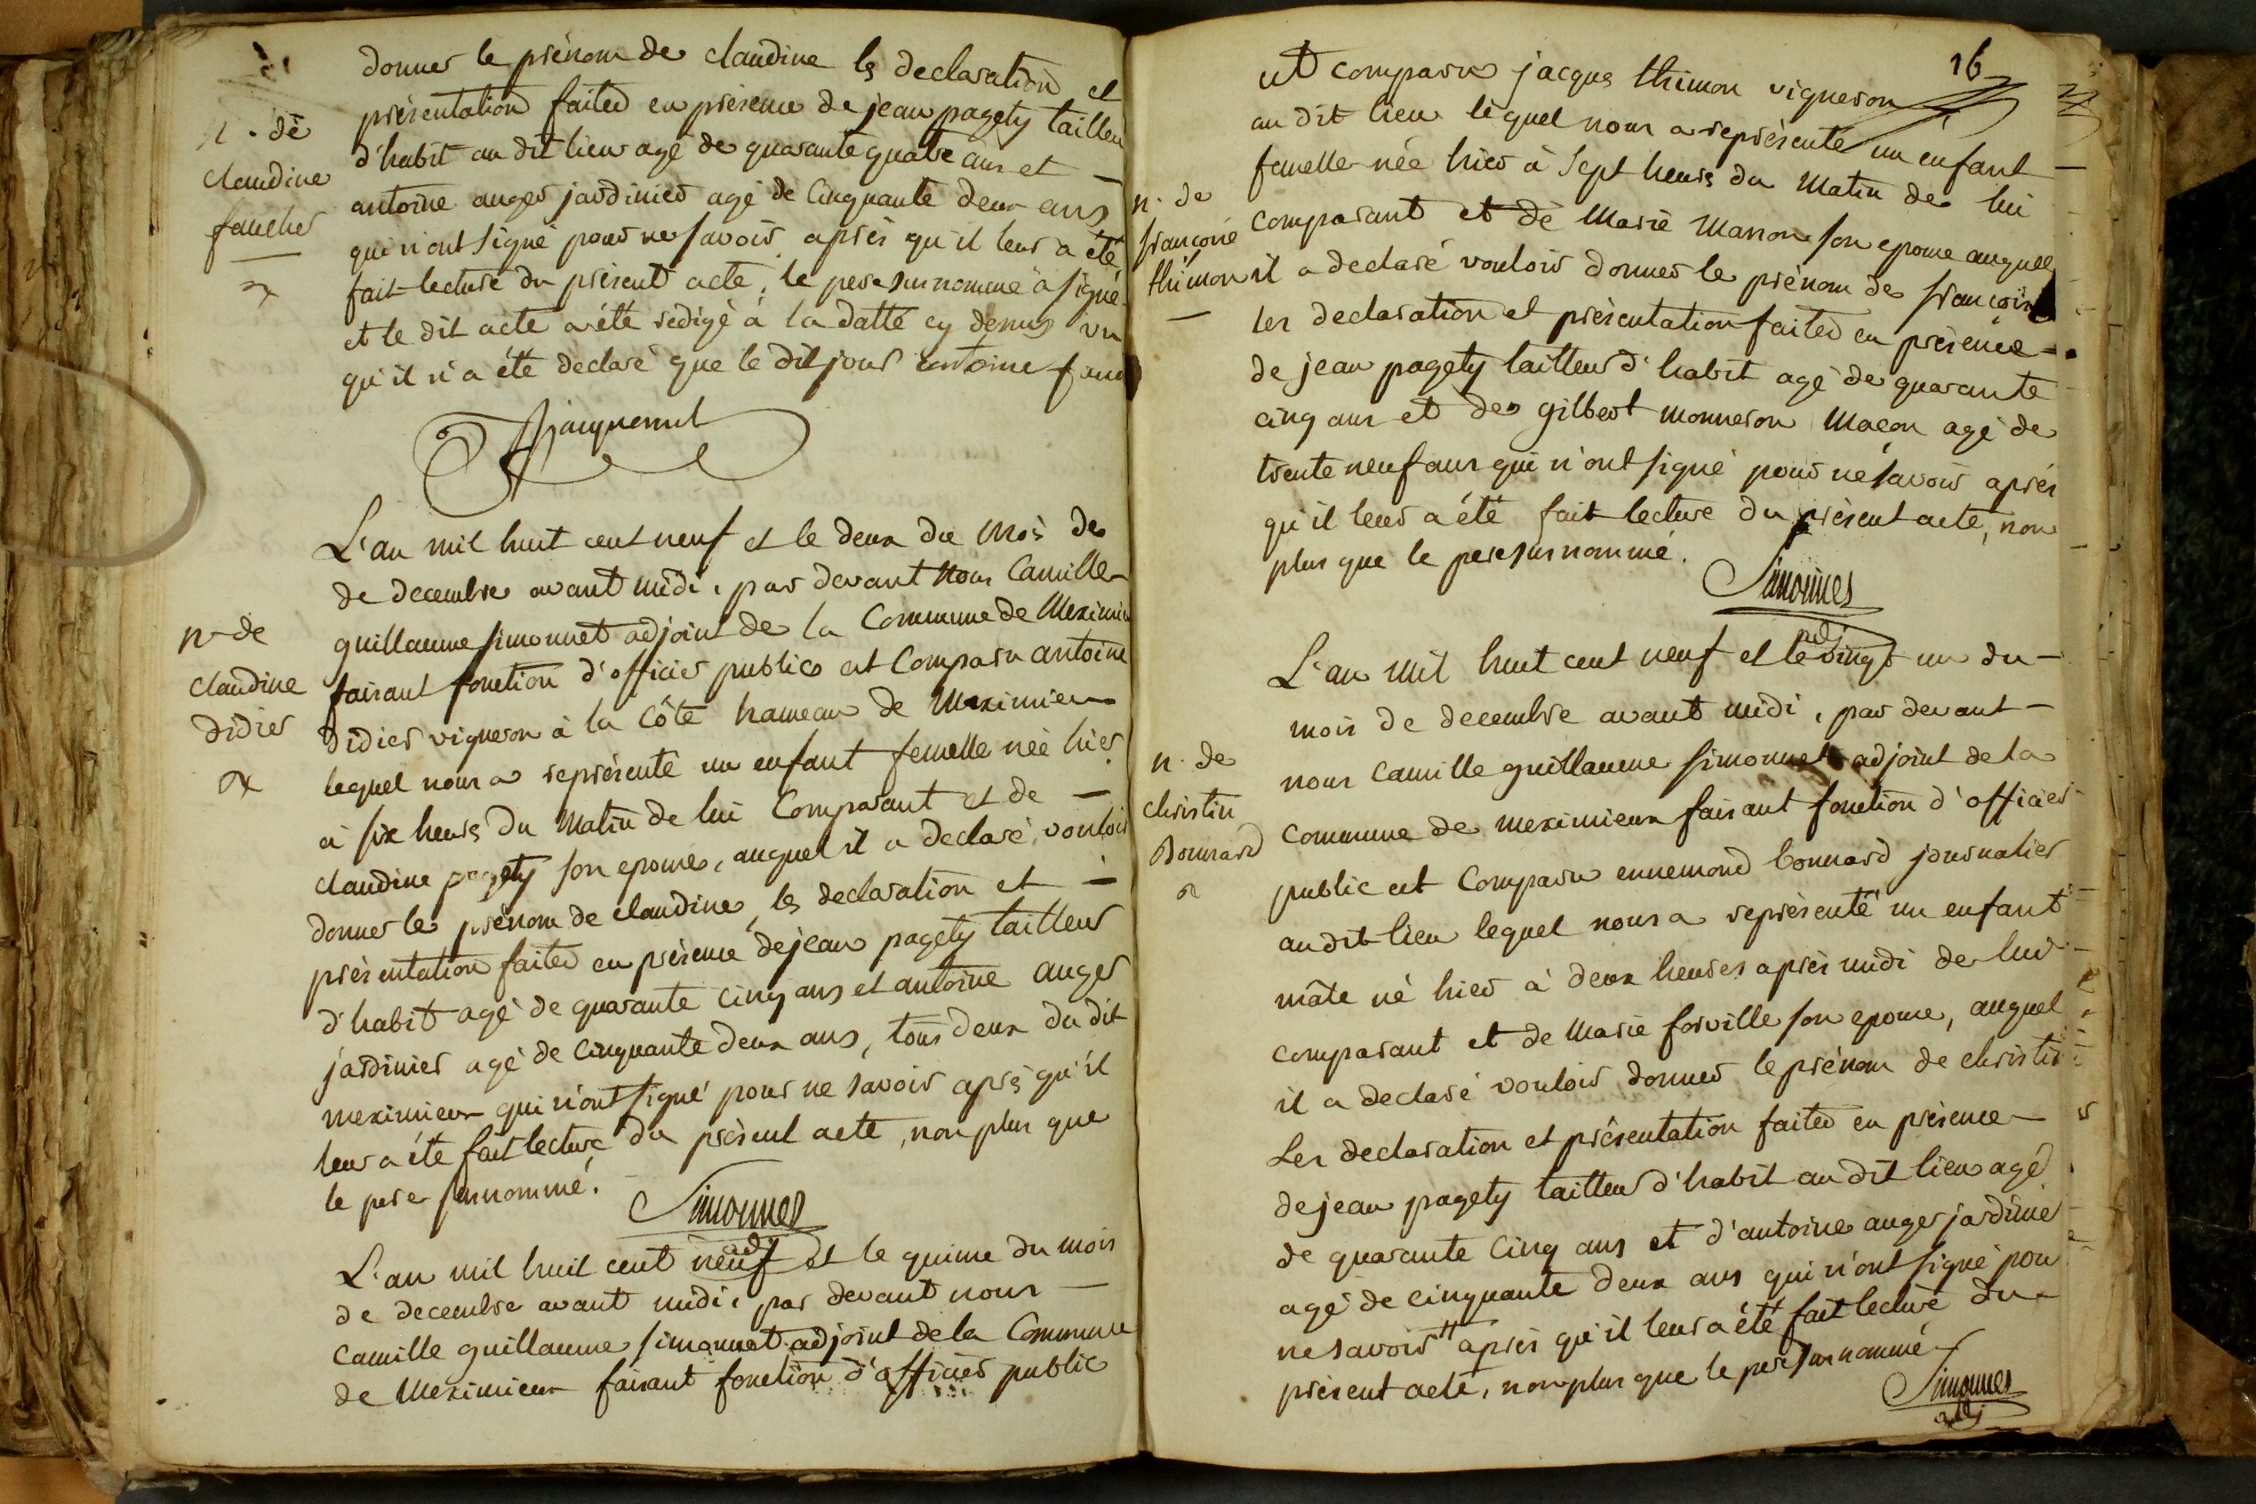 donner le prénom de claudine les declaration et
présentation faites en présence de jean pagety tailleu
n. de
d'habit au dit lieu agé de quarante quatre ans et —
claudine
antoine auger jardinier agé de cinquante deux ans
faucher
qui n'ont signé pour ne savoir après qu'il leur a été
fait lecture du présent acte, le pere surnommé a signé
et le dit acte a été redigé à la datte cy dessus vu
qu'il n'a été declaré que le dit jour antoine fau
Jacquemet
L'an mil huit cent neuf et le deux du mois de
de decembre avant midi, par devant nous Camille
n. de
guillaume simonnet adjoint de la Commune de Meximieu
claudine
faisant fonction d'officier public est Comparu antoine
didier
didier vigneron à la Côte hameau de Meximieux
lequel nous a représenté un enfant femelle née hier
à six heures du Matin de lui Comparant et de —
claudine pagety son epouse, auquel il a declaré vouloir
donner le prénom de claudine, les declaration et —
présentation faites en présence de jean pagety tailleur
d'habit agé de quarante cinq ans et antoine auger
jardinier agé de cinquante deux ans, tous deux du dit
meximieux qui n'ont signé pour ne savoir après qu'il
leur a été fait lecture du présent acte, non plus que
le pere surnommé.
Simonnet
adj
L'an mil huit cent neuf et le quinze du mois
de decembre avant midi, par devant nous —
Camille guillaume simonnet adjoint de la Commune
de Meximieux faisant fonction d'officier public
16
est comparu jacques thimon vigneron
au dit lieu lequel nous a représenté un enfant
femelle née hier à sept heures du Matin de lui
n. de
comparant et de Marie Marron son epouse auquel
françoise
thimon
il a declaré vouloir donner le prénom de françoise
les declaration et présentation faites en présence —
de jean pagety tailleur d'habit agé de quarante
cinq ans et de gilbert monneron Maçon agé de
trente neuf ans qui n'ont signé pour ne savoir après
qu'il leur a été fait lecture du présent acte, non
plus que le pere surnommé.
Simonnet
adj
L'an mil huit cent neuf et le vingt un du —
mois de decembre avant midi, par devant —
n. de
nous Camille guillaume simonnet adjoint de la
christin
commune de meximieux faisant fonction d'officier
Bonnard
public est Comparu ennemond bonnard journalier
au dit lieu lequel nous a représenté un enfant
mâle né hier à deux heures après midi de lui
comparant et de Marie forville son epouse, auquel
il a declaré vouloir donner le prénom de christin
Les declaration et présentation faites en présence
de jean pagety tailleur d'habit au dit lieu agé
de quarante cinq ans et d'antoine auger jardinier
agé de cinquante deux ans qui n'ont signé pour
ne savoir après qu'il leur a été fait lecture du
présent acte, non plus que le pere surnommé
Simonnet
adj